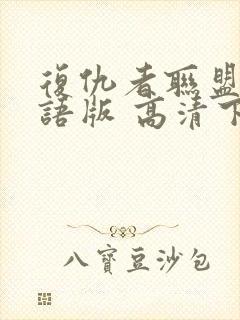 復仇者聯盟
語版 高清下
八寶豆沙包